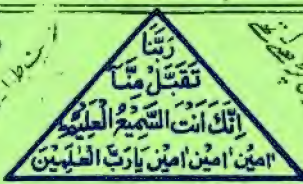 رَبَّنَا
تَقَبَّلْ مِنَّا
اِنَّكَ اَنْتَ السَّمِيْعُ الْعَلِيْمُ
اٰمِيْن اٰمِيْن اٰمِيْن يَارَبَّ الْعٰلَمِيْن